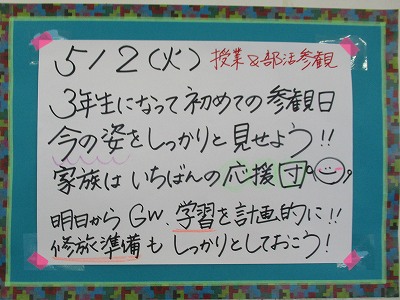 5/2(火) 授業&部活参観
3年生になって初めての参観日
今の姿をしっかりと見せよう!!
家族はいちばんの応援団
明日からGW、学習を計画的に!!
修旅準備もしっかりとしておこう!